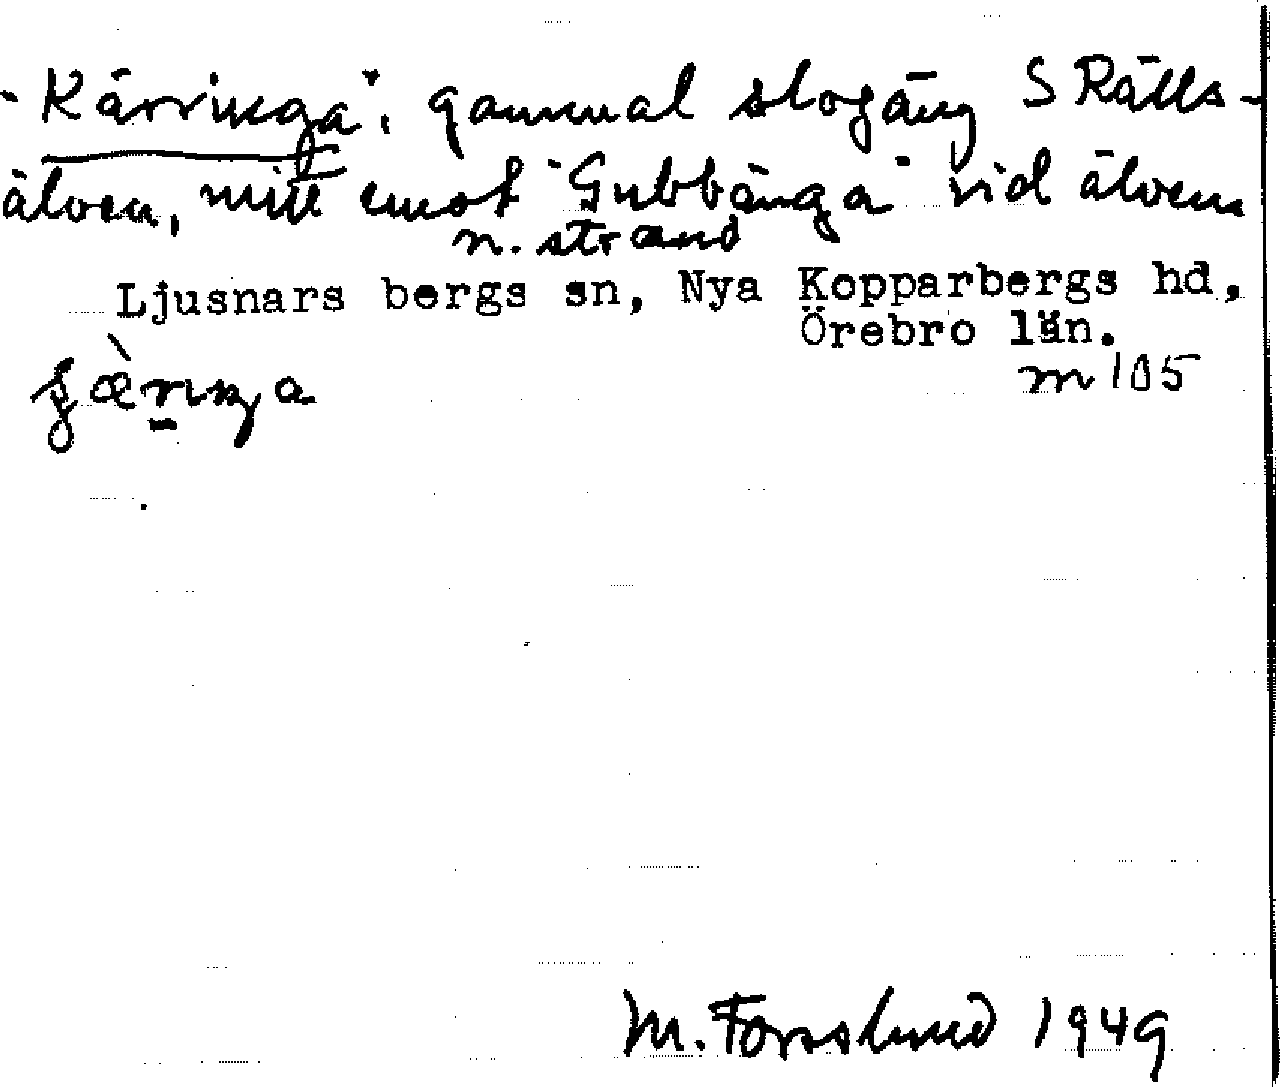 "Kärringa", gammal slogäng S Rälls-
älven, mitt emot "Gubbänga" vid älvens
n. strand
Ljusnars bergs sn, Nya Kopparbergs hd,
Örebro län.
m 105
M. Forslund 1949